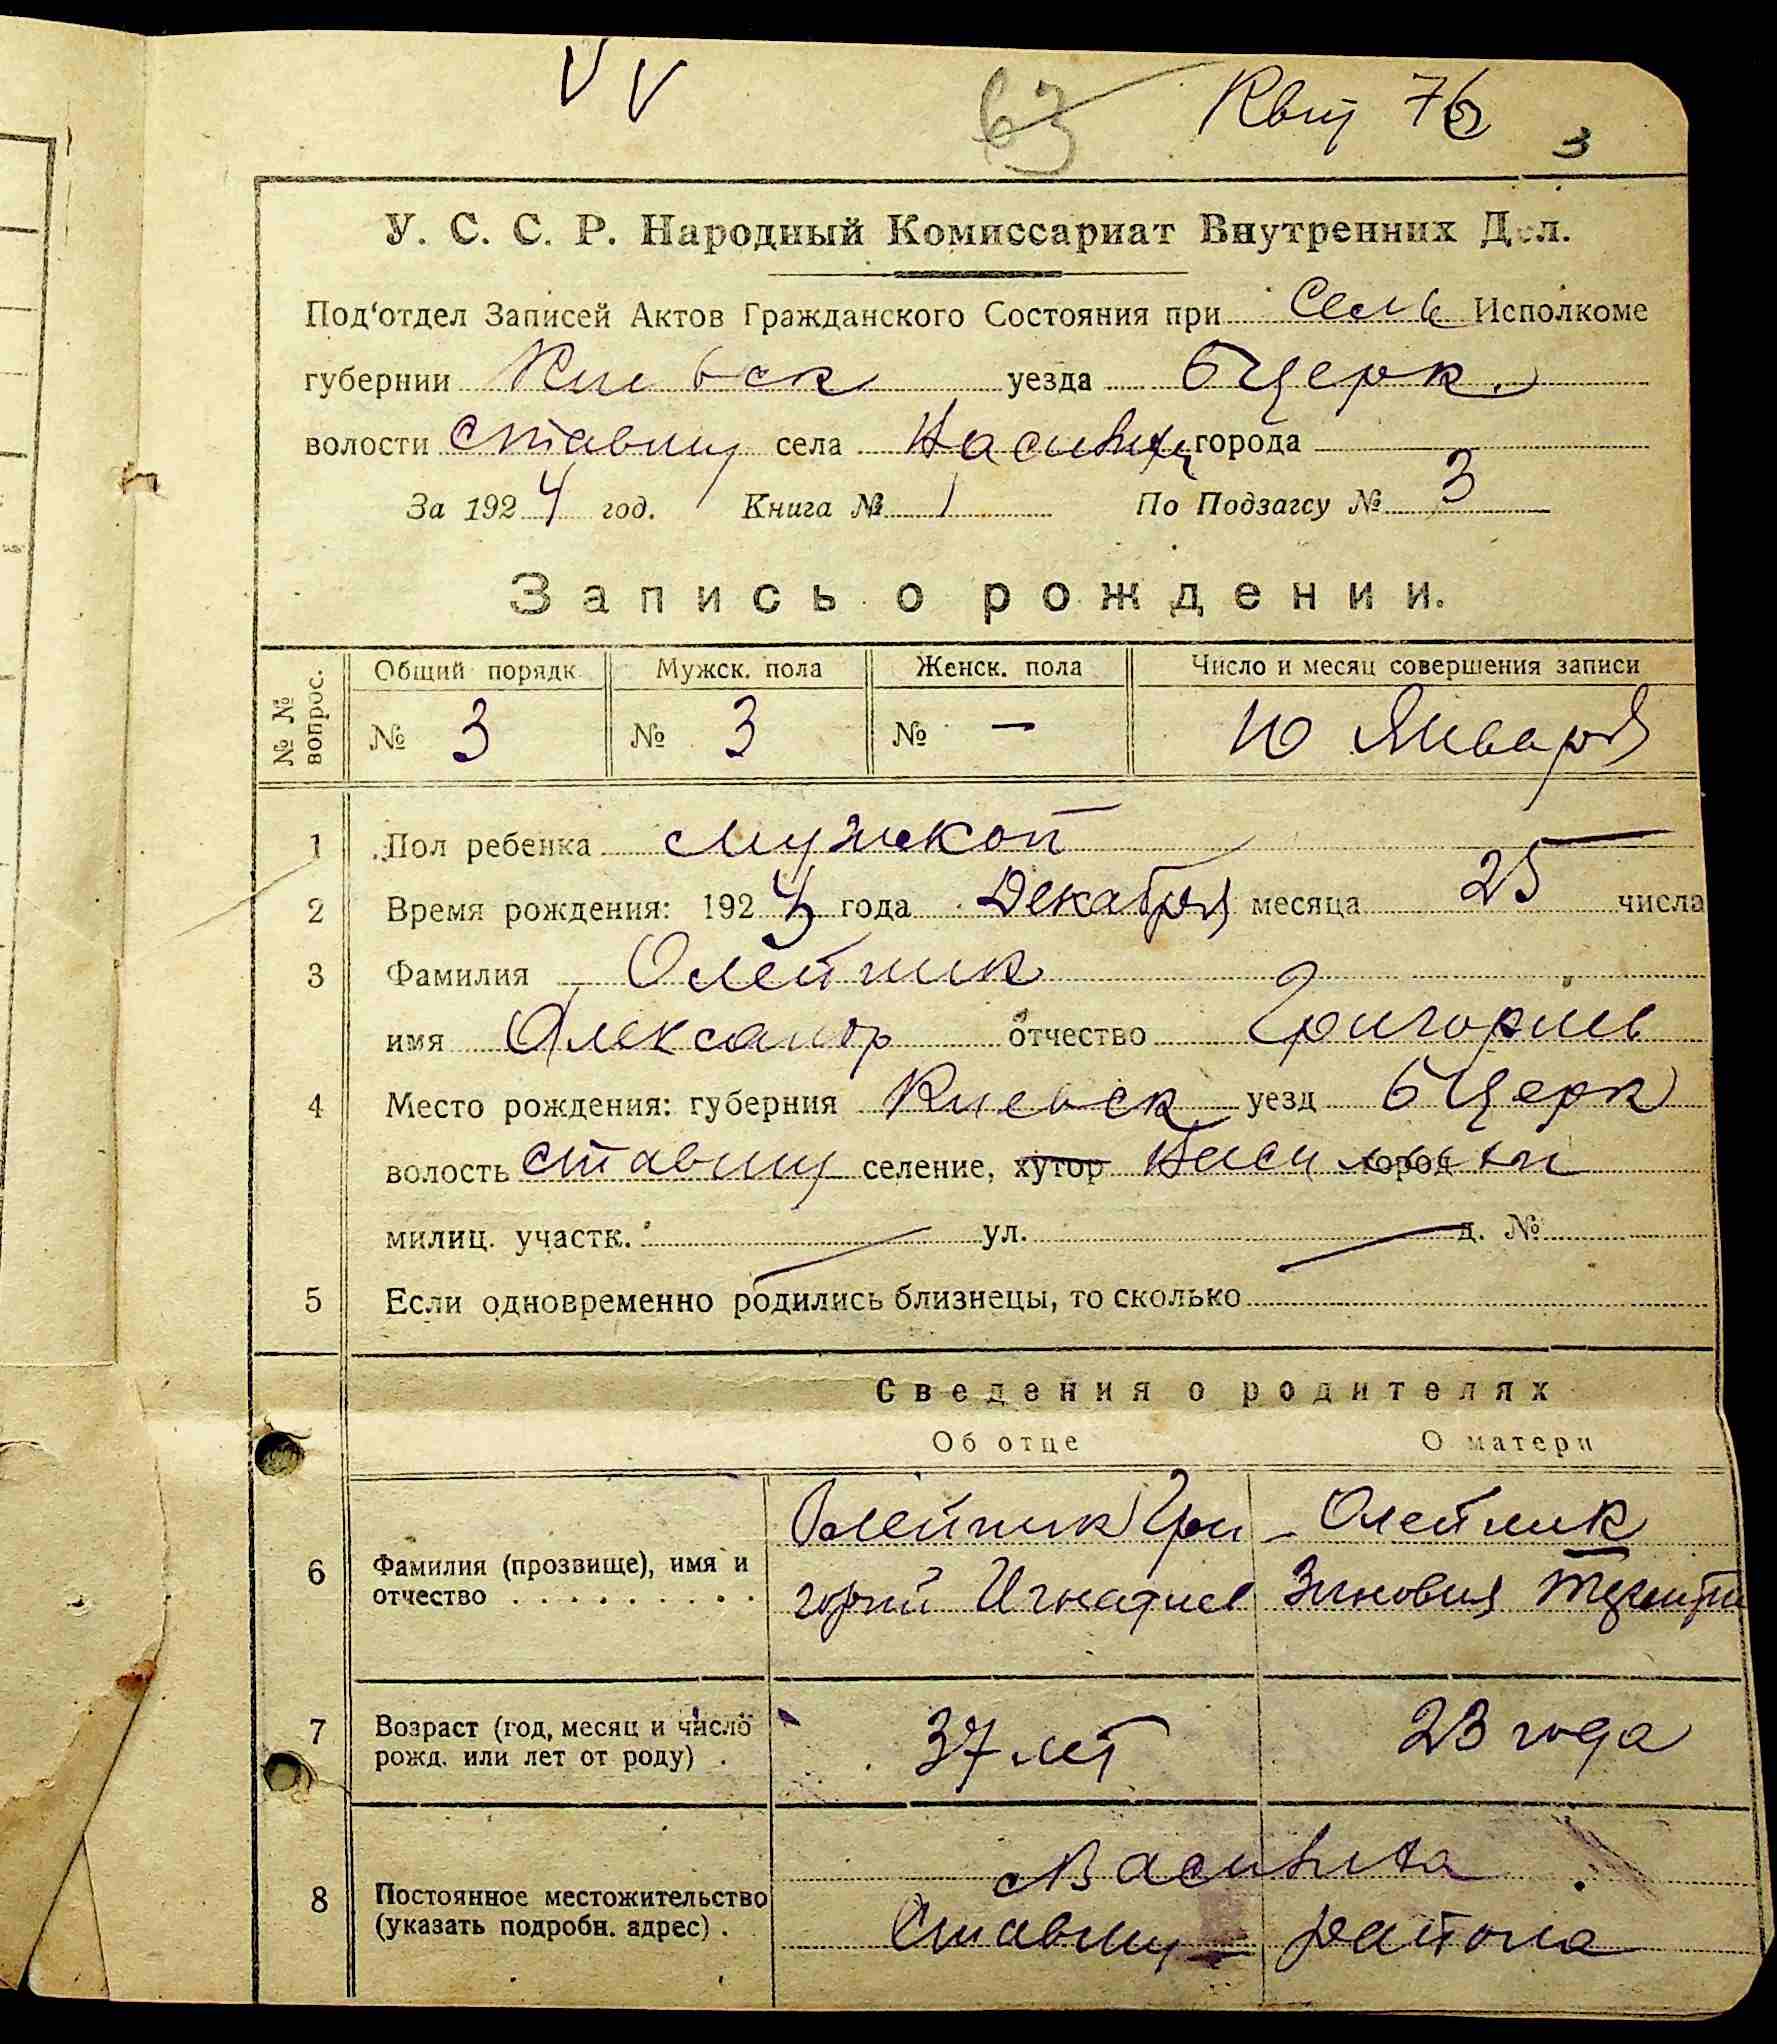 V V 63 Квит 76
3
У. С. С. Р. Народный Комиссариат Внутренних Дел.
Под‘отдел Записей Актов Гражданского Состояния при Сель Исполкоме
губернии Киевск уезда БЦерк.
волости Ставищ села города
За 1924 год. Книга № 1 По Подзагсу № 3
Запись о рождении.
№ № вопрос.
Общий порядк. Мужск. пола Женск. пола Число и месяц совершения записи
№ 3 № 3 № — 10 Января
1 Пол ребенка мужской
2 Время рождения: 1923 года Декабря месяца 25 числа
3 Фамилия Олейник
имя Александр отчество Григориев
4 Место рождения: губерния Киевск уезд БЦерк
волость Ставищ селение, хутор город
милиц. участк. ул. д. №
5 Если одновременно родились близнецы, то сколько
Сведения о родителях
Об отце О матери
6 Фамилия (прозвище), имя и отчество
Олейник Гри- Олейник
горий Игнатиев Зиновия
7 Возраст (год, месяц и число рожд. или лет от роду) . 37 лет 23 года
8 Постоянное местожительство (указать подробн. адрес) .
Ставищ района